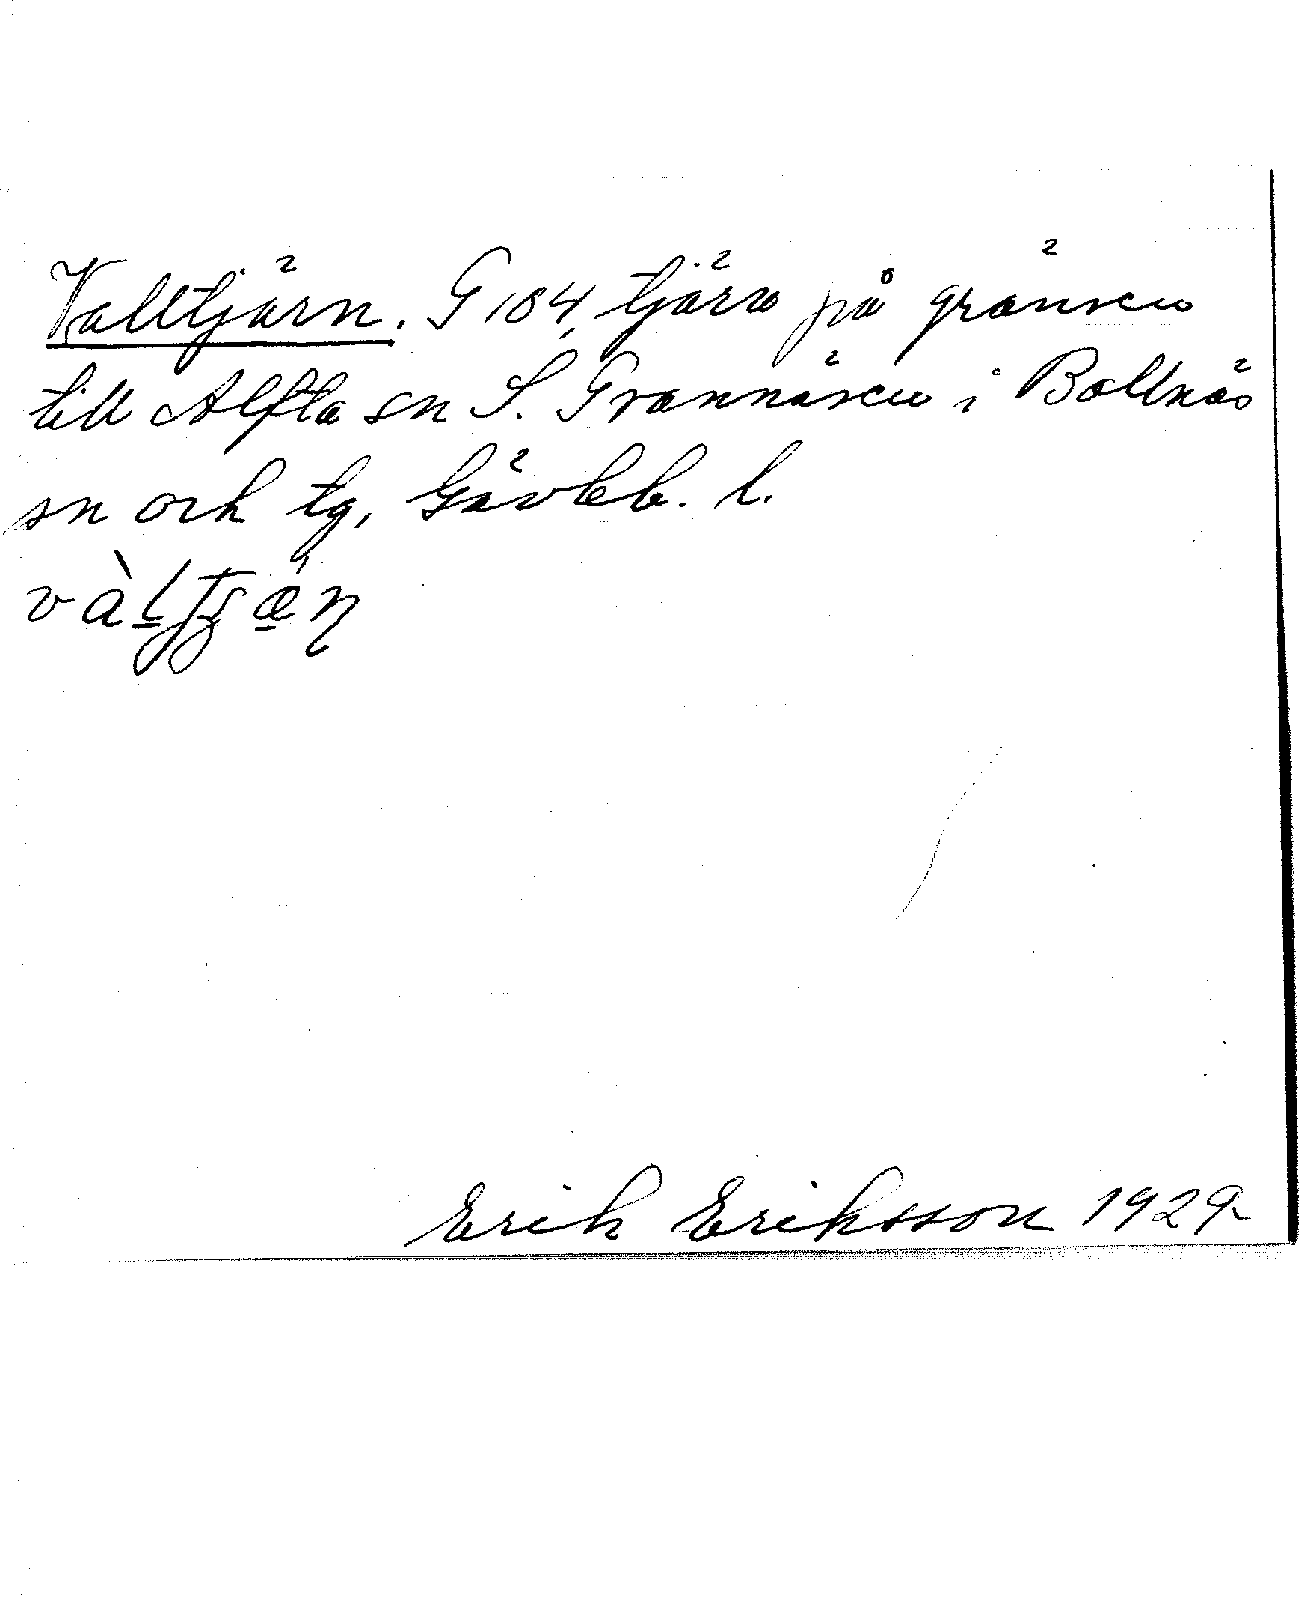 Valltjärn. G 184, tjärn på gränsen
till Alfta sn S. Grannäsen i Bollnäs
sn och tg, Gävleb. l.
Erik Eriksson 1929